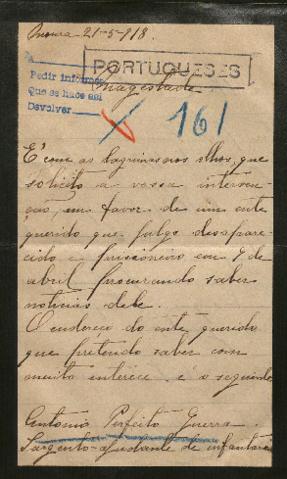 Moura 21-5-918.
PORTUGUESES
Magestade
Pedir informes
Que se hace así
Devolver
161
É com as lagrimas nos olhos, que
solicito a vossa interven-
ção em favor de um ente
querido que julgo desapare-
cido e prisioneiro em 9 de
abril procurando saber
noticias dele.
O endereço do ente querido
que pretendo saber com
muito interece é o seguinte
Antonio Perfeito Guerra.
Sargento-ajudante de infantaria